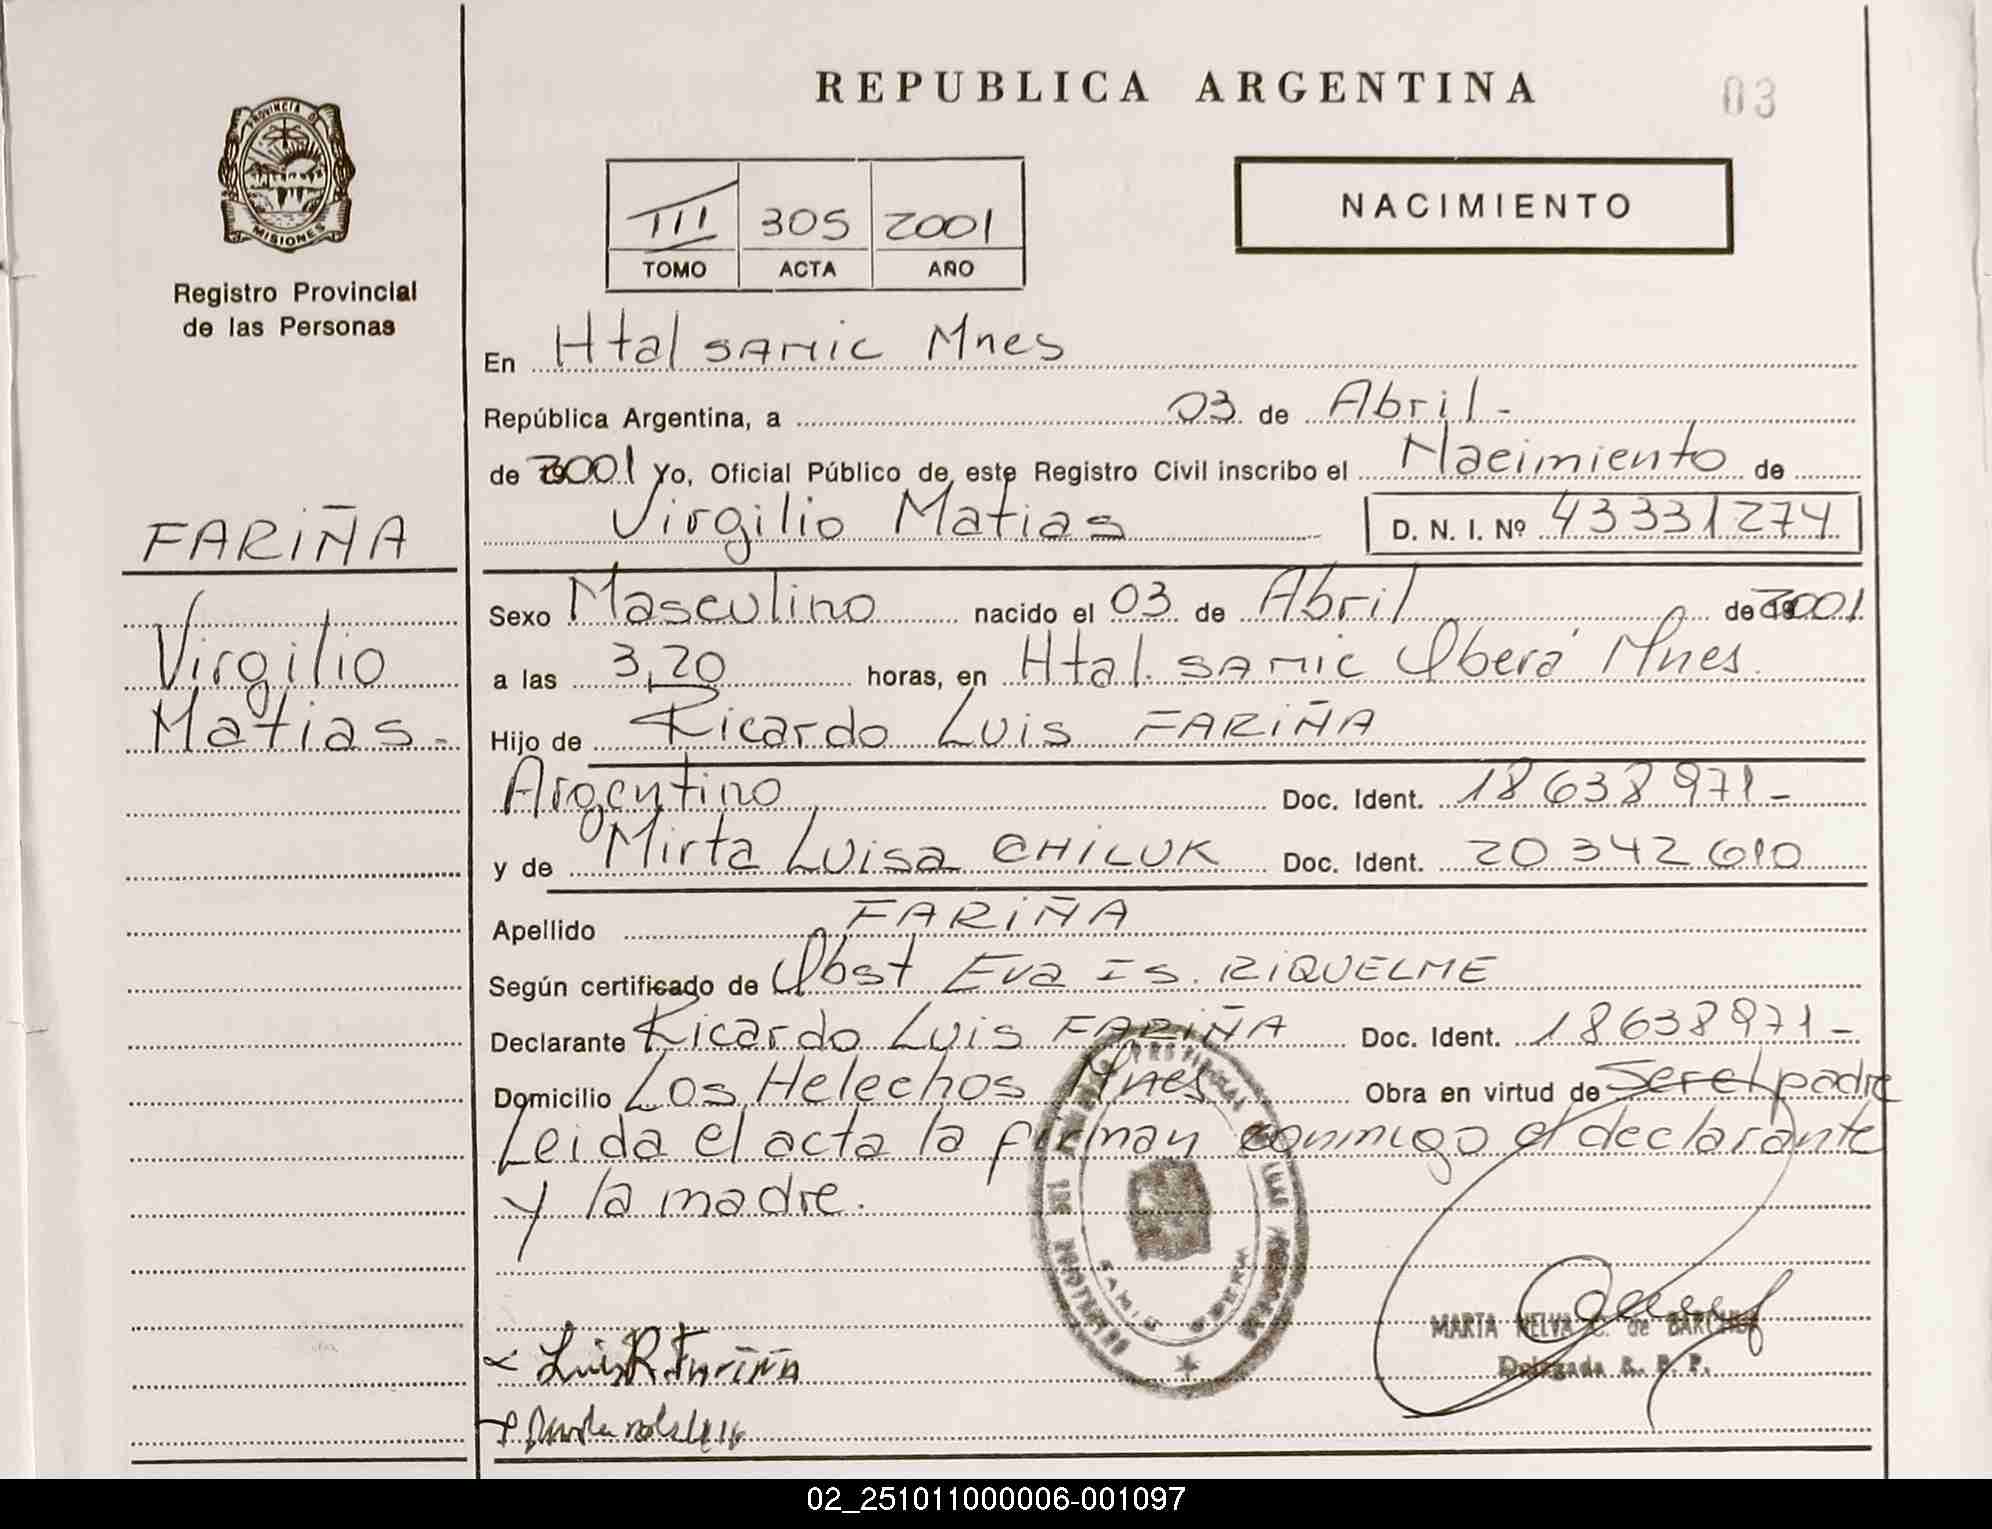 REPUBLICA ARGENTINA
03
PROVINCIA D
MISIONES
Registro Provincial
de las Personas
III 305 2001
TOMO ACTA AÑO
NACIMIENTO
En Htal SAMIC Mnes
República Argentina, a 03 de Abril -
de 2001 Yo, Oficial Público de este Registro Civil inscribo el Nacimiento de
Virgilio Matias D. N. I. Nº 43331274
FARIÑA
Virgilio
Matias -
Sexo Masculino nacido el 03 de Abril de 2001
a las 3,20 horas, en Htal. SAMIC Oberá Mnes.
Hijo de Ricardo Luis FARIÑA
Argentino Doc. Ident. 18638971 -
y de Mirta Luisa CHILUK Doc. Ident. 20342610
Apellido FARIÑA
Según certificado de Obst Eva Is. RIQUELME
Declarante Ricardo Luis FARIÑA Doc. Ident. 18638971 -
Domicilio Los Helechos Mnes Obra en virtud de Ser el padre
Leida el acta la firman conmigo el declarante
y la madre.
SAMIC OBERA
MARTA NELVA de
Delegada R. P. P.
Luis R. Fariña
02_251011000006-001097